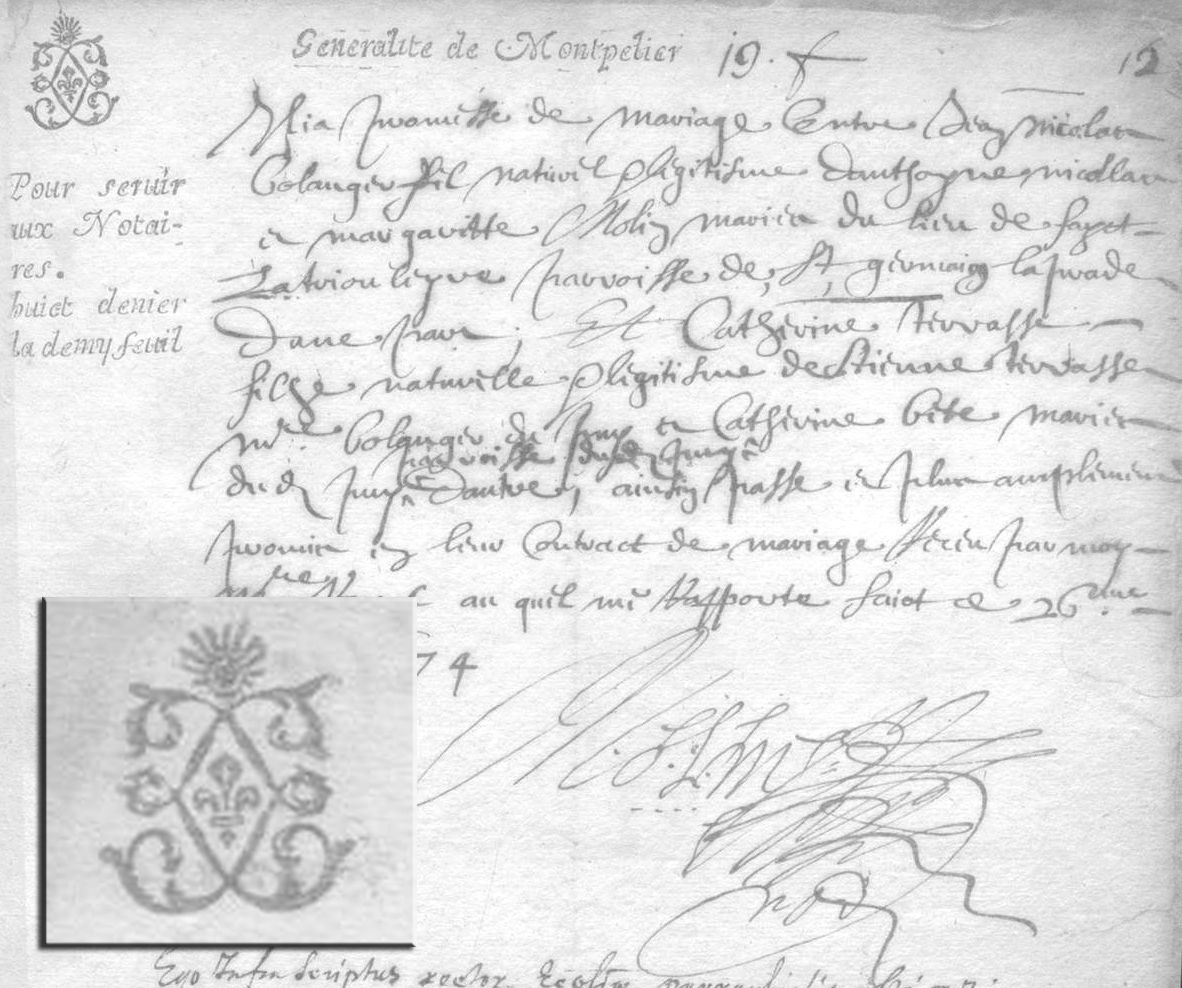 Generalite de Montpelier 19. f 12
Pour seruir
aux Notai-
res.
huict denier
la demy feuil
Il a promesse de mariage Entre Jean nicolas
bolanger fil naturel & legitisme danthoyne nicollas
et margaritte Molin maries du lieu de fayet
parroisse de St germaing laprade
dune par, Et Catherine terrasse
filhe naturelle & legitisme destienne terrasse
mre bolanger du puy et Catherine bete maries
parroisse dud puy
dud puy dautre, ainsin passe et plus amplement
promis en leur Contract de mariage Receu par moy
au quil me Rapporte faict ce 26me
74
Ego Infra scriptus rector